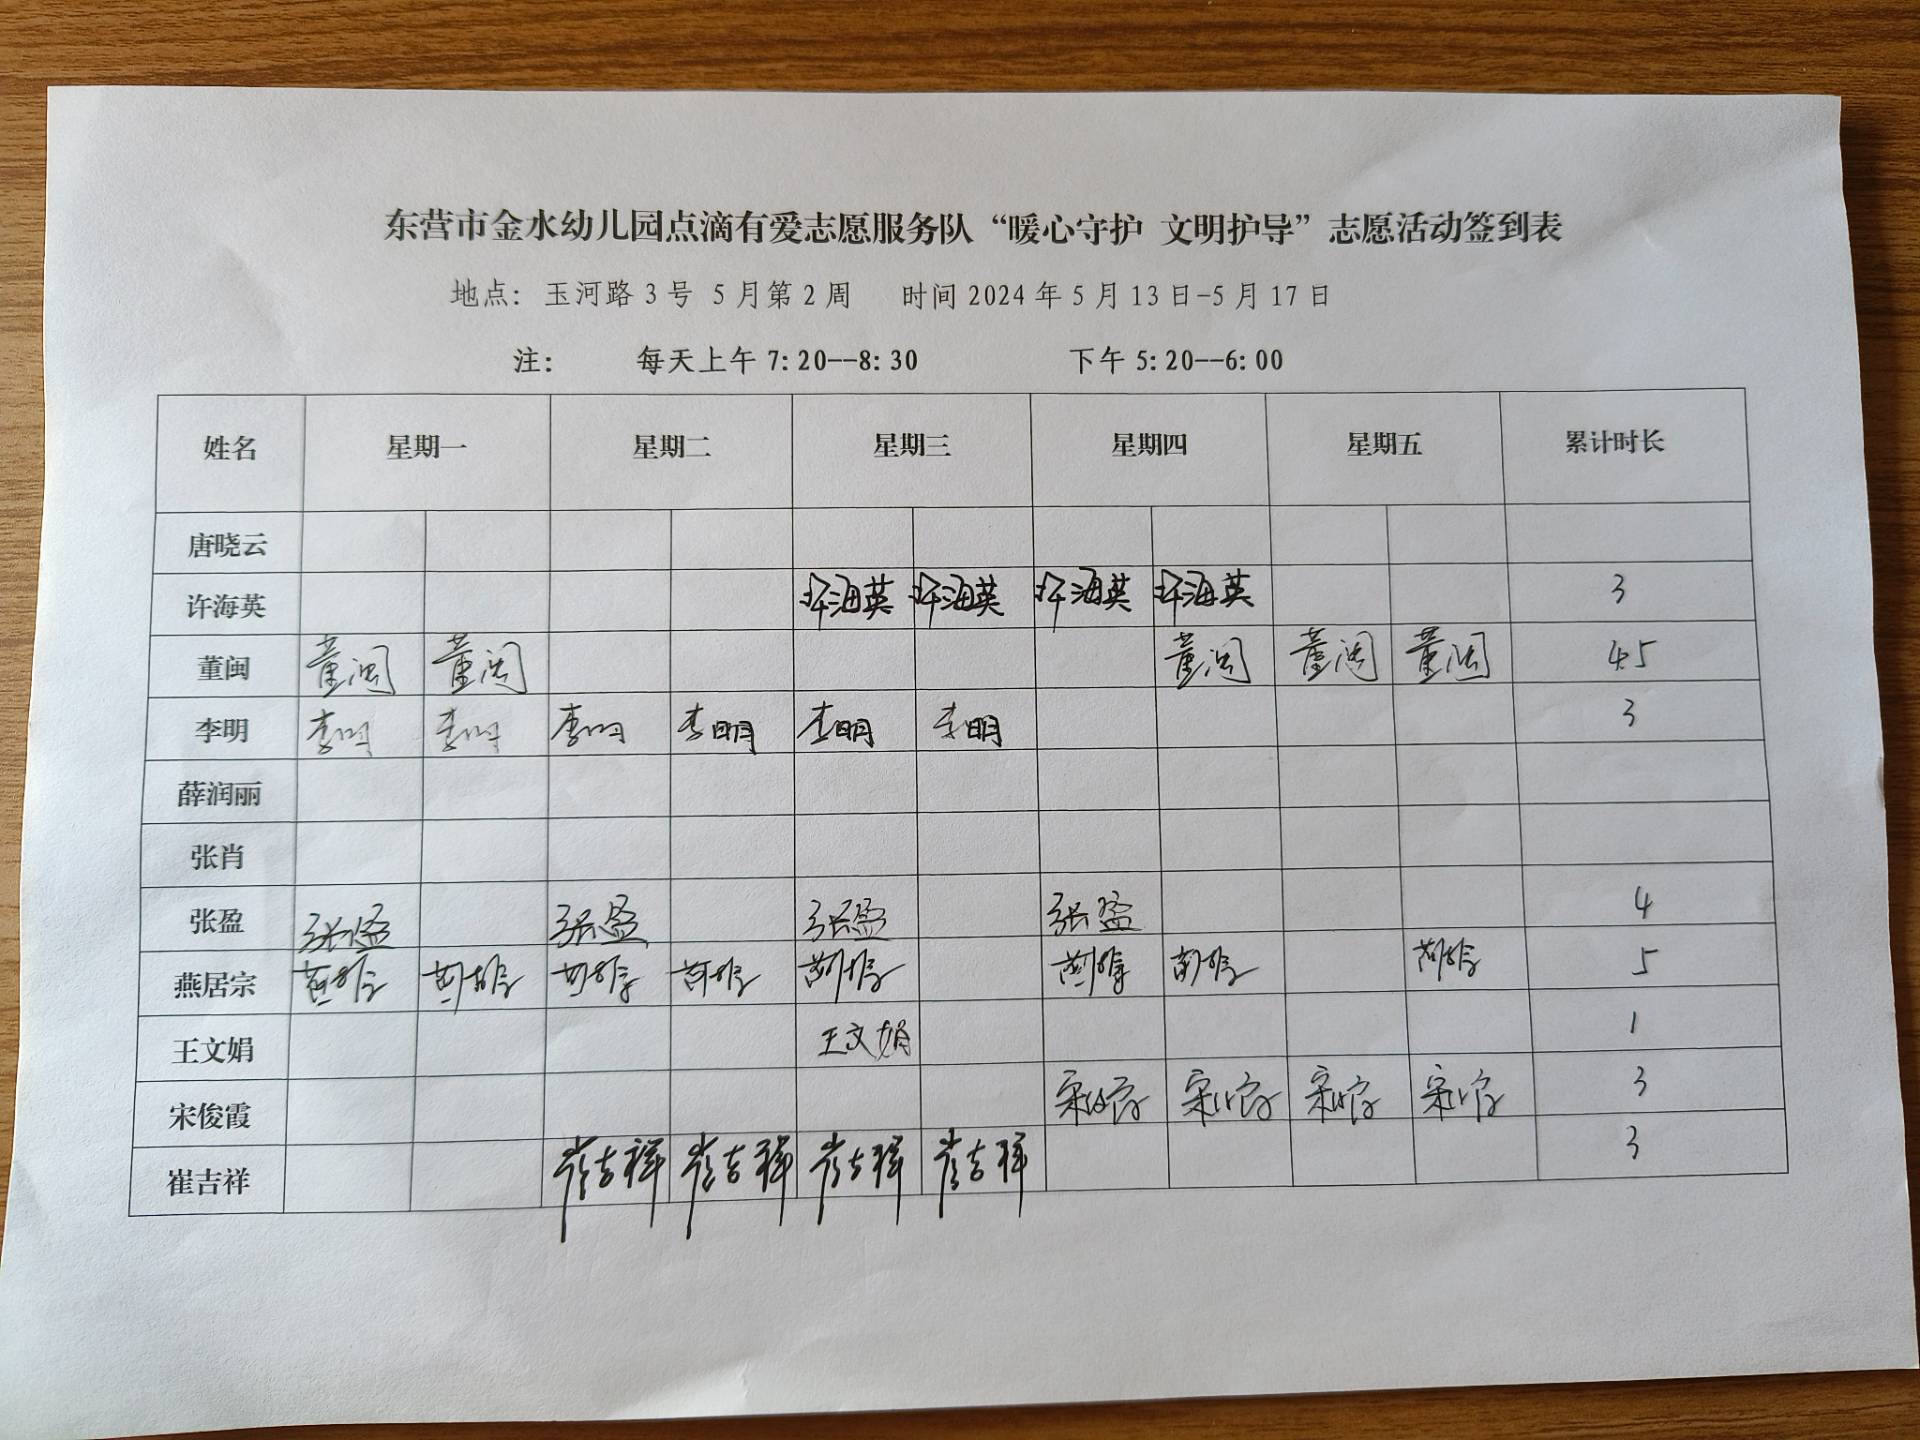 东营市金水幼儿园点滴有爱志愿服务队“暖心守护 文明护导”志愿活动签到表
地点：玉河路3号 5月第2周 时间2024年5月13日-5月17日
注： 每天上午7:20--8:30 下午5:20--6:00
姓名 星期一 星期二 星期三 星期四 星期五 累计时长
唐晓云
许海英 许海英 许海英 许海英 许海英 3
董闽 董闽 董闽 董闽 董闽 董闽 4.5
李明 李明 李明 李明 李明 李明 李明 3
薛润丽
张肖
张盈 张盈 张盈 张盈 张盈 4
燕居宗 5
王文娟 王文娟 1
宋俊霞 宋俊霞 宋俊霞 宋俊霞 宋俊霞 3
崔吉祥 崔吉祥 崔吉祥 崔吉祥 崔吉祥 3